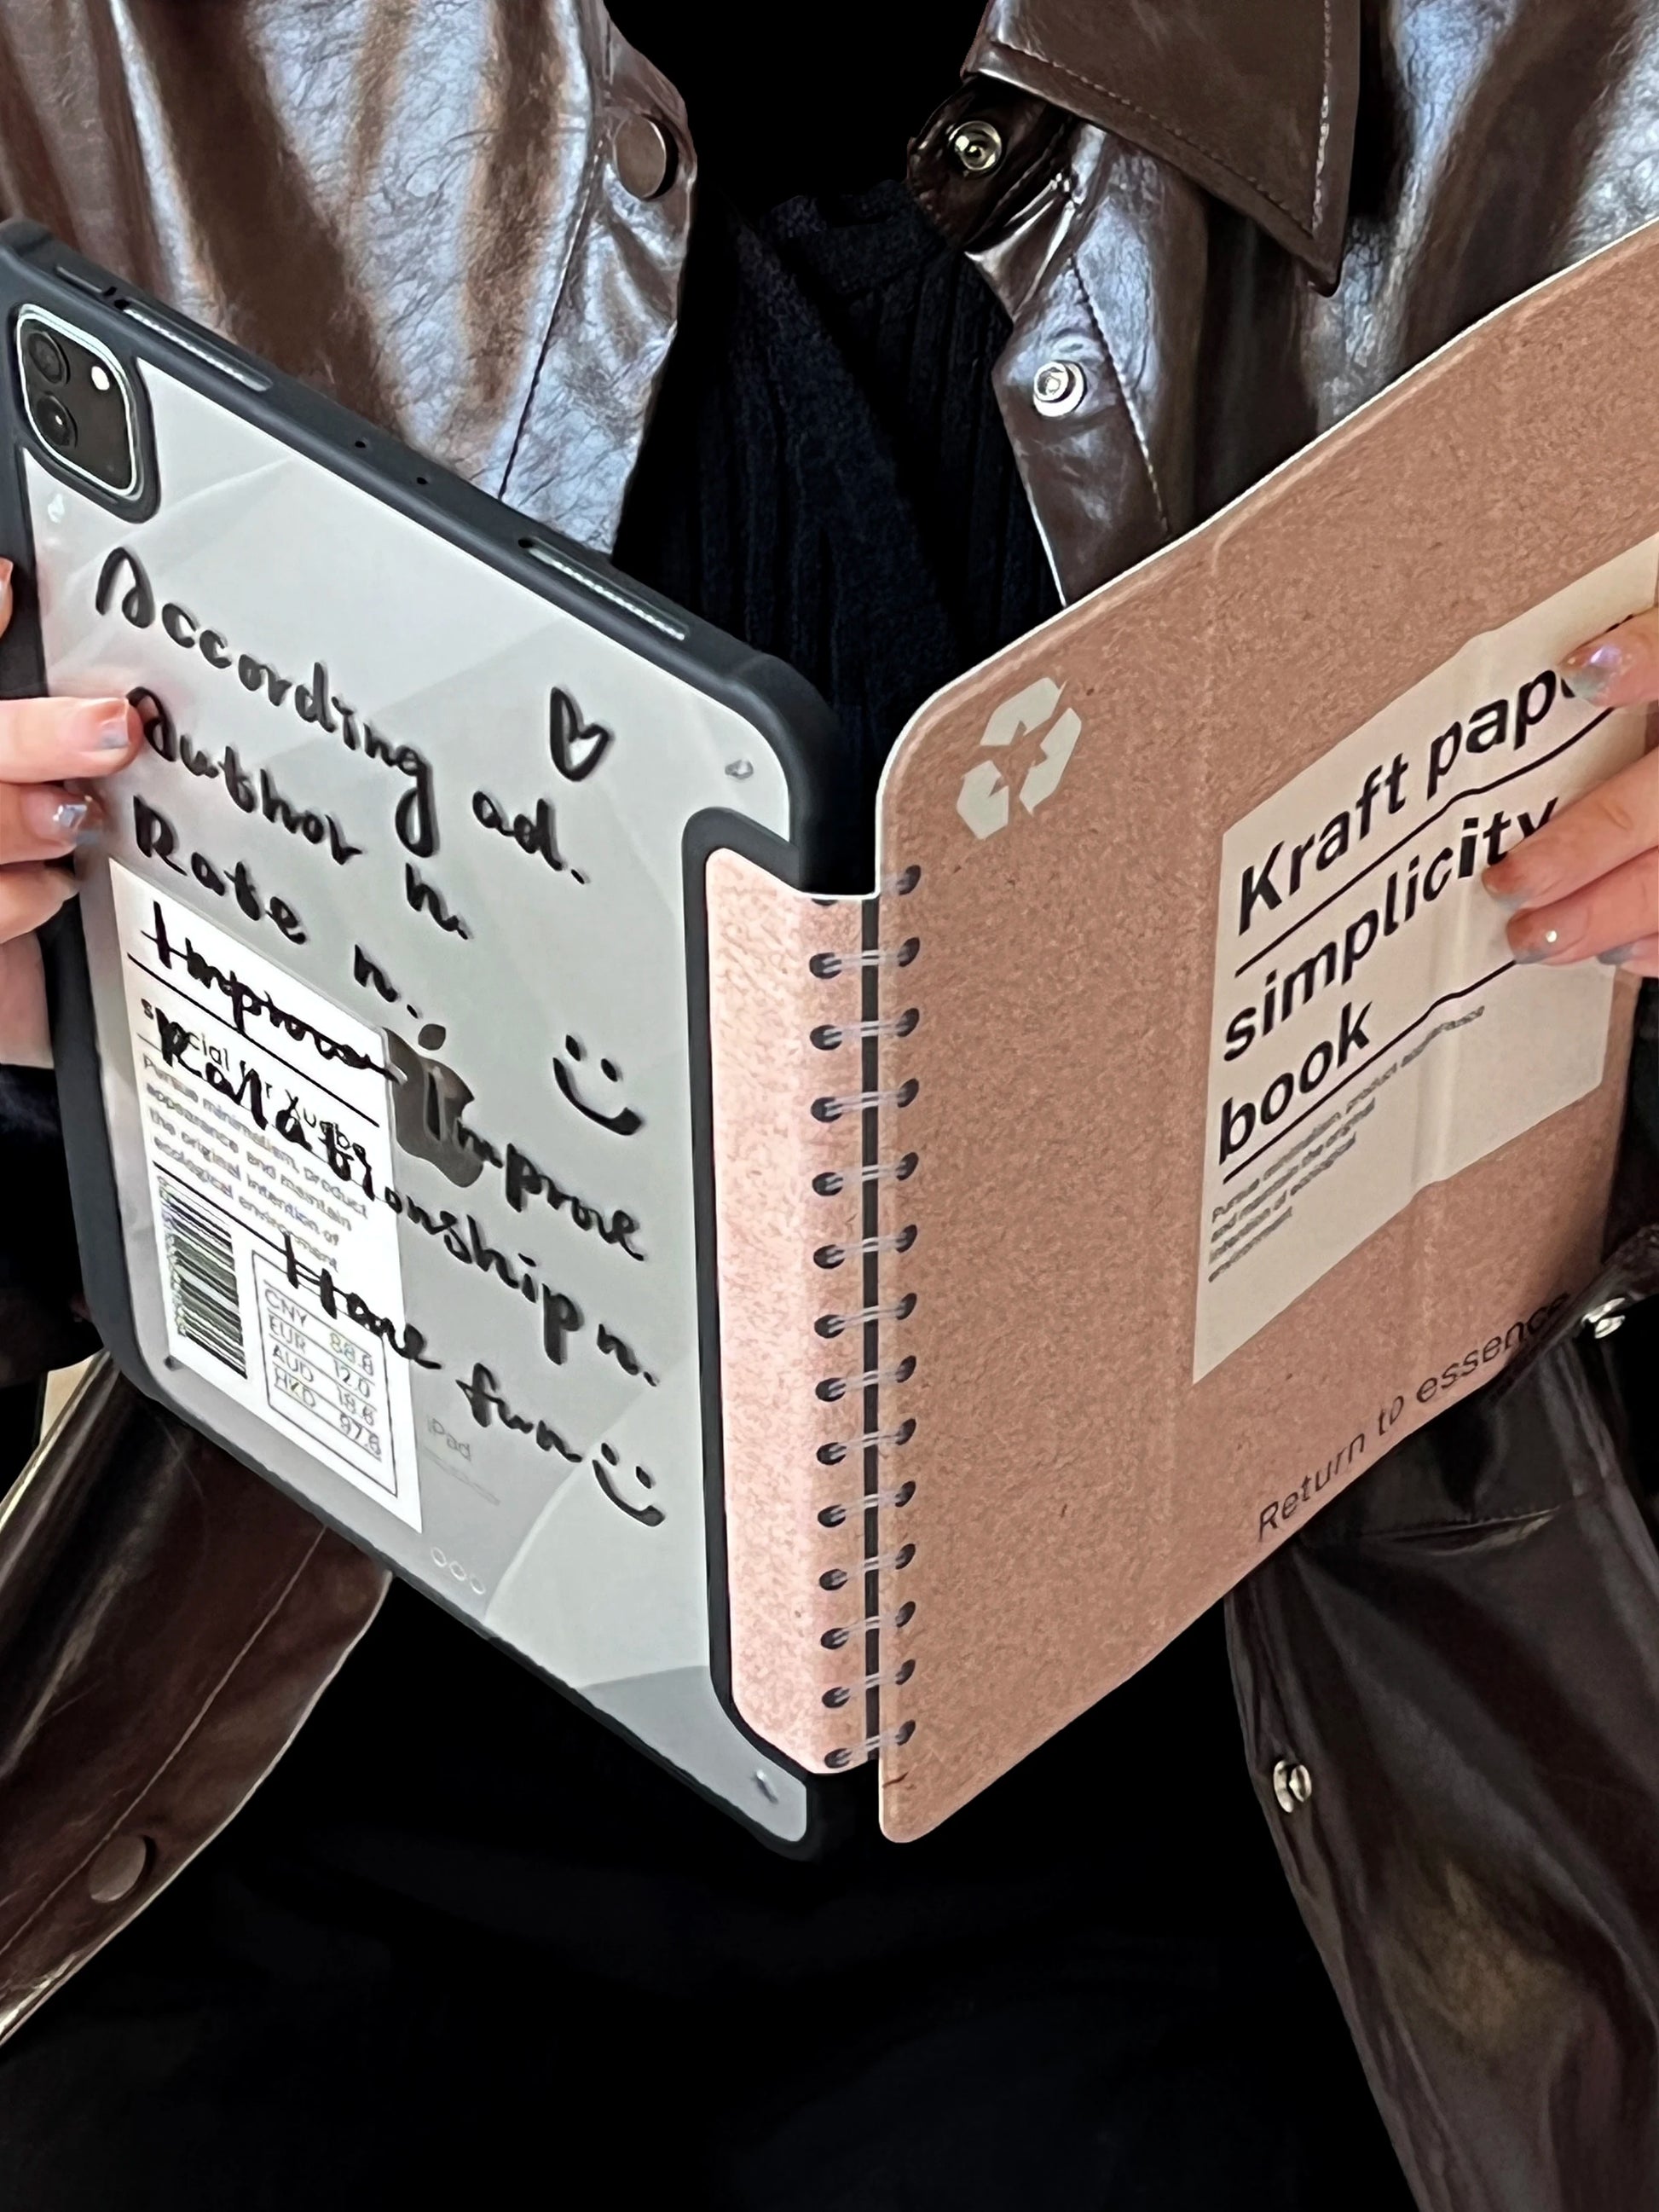 According ad.
Author n.
Rate n.
Improve
Improve
Relationship n.
Have fun
special for yuebe
Pursue minimalism, product
appearance and maintain
the original intention of
ecological environment
CNY 88.8
EUR 12.0
AUD 18.6
HKD 97.6
iPad
Kraft pape
simplicity
book
Pursue minimalism, product appearance
and maintain the original
intention of ecological
environment
Return to essence